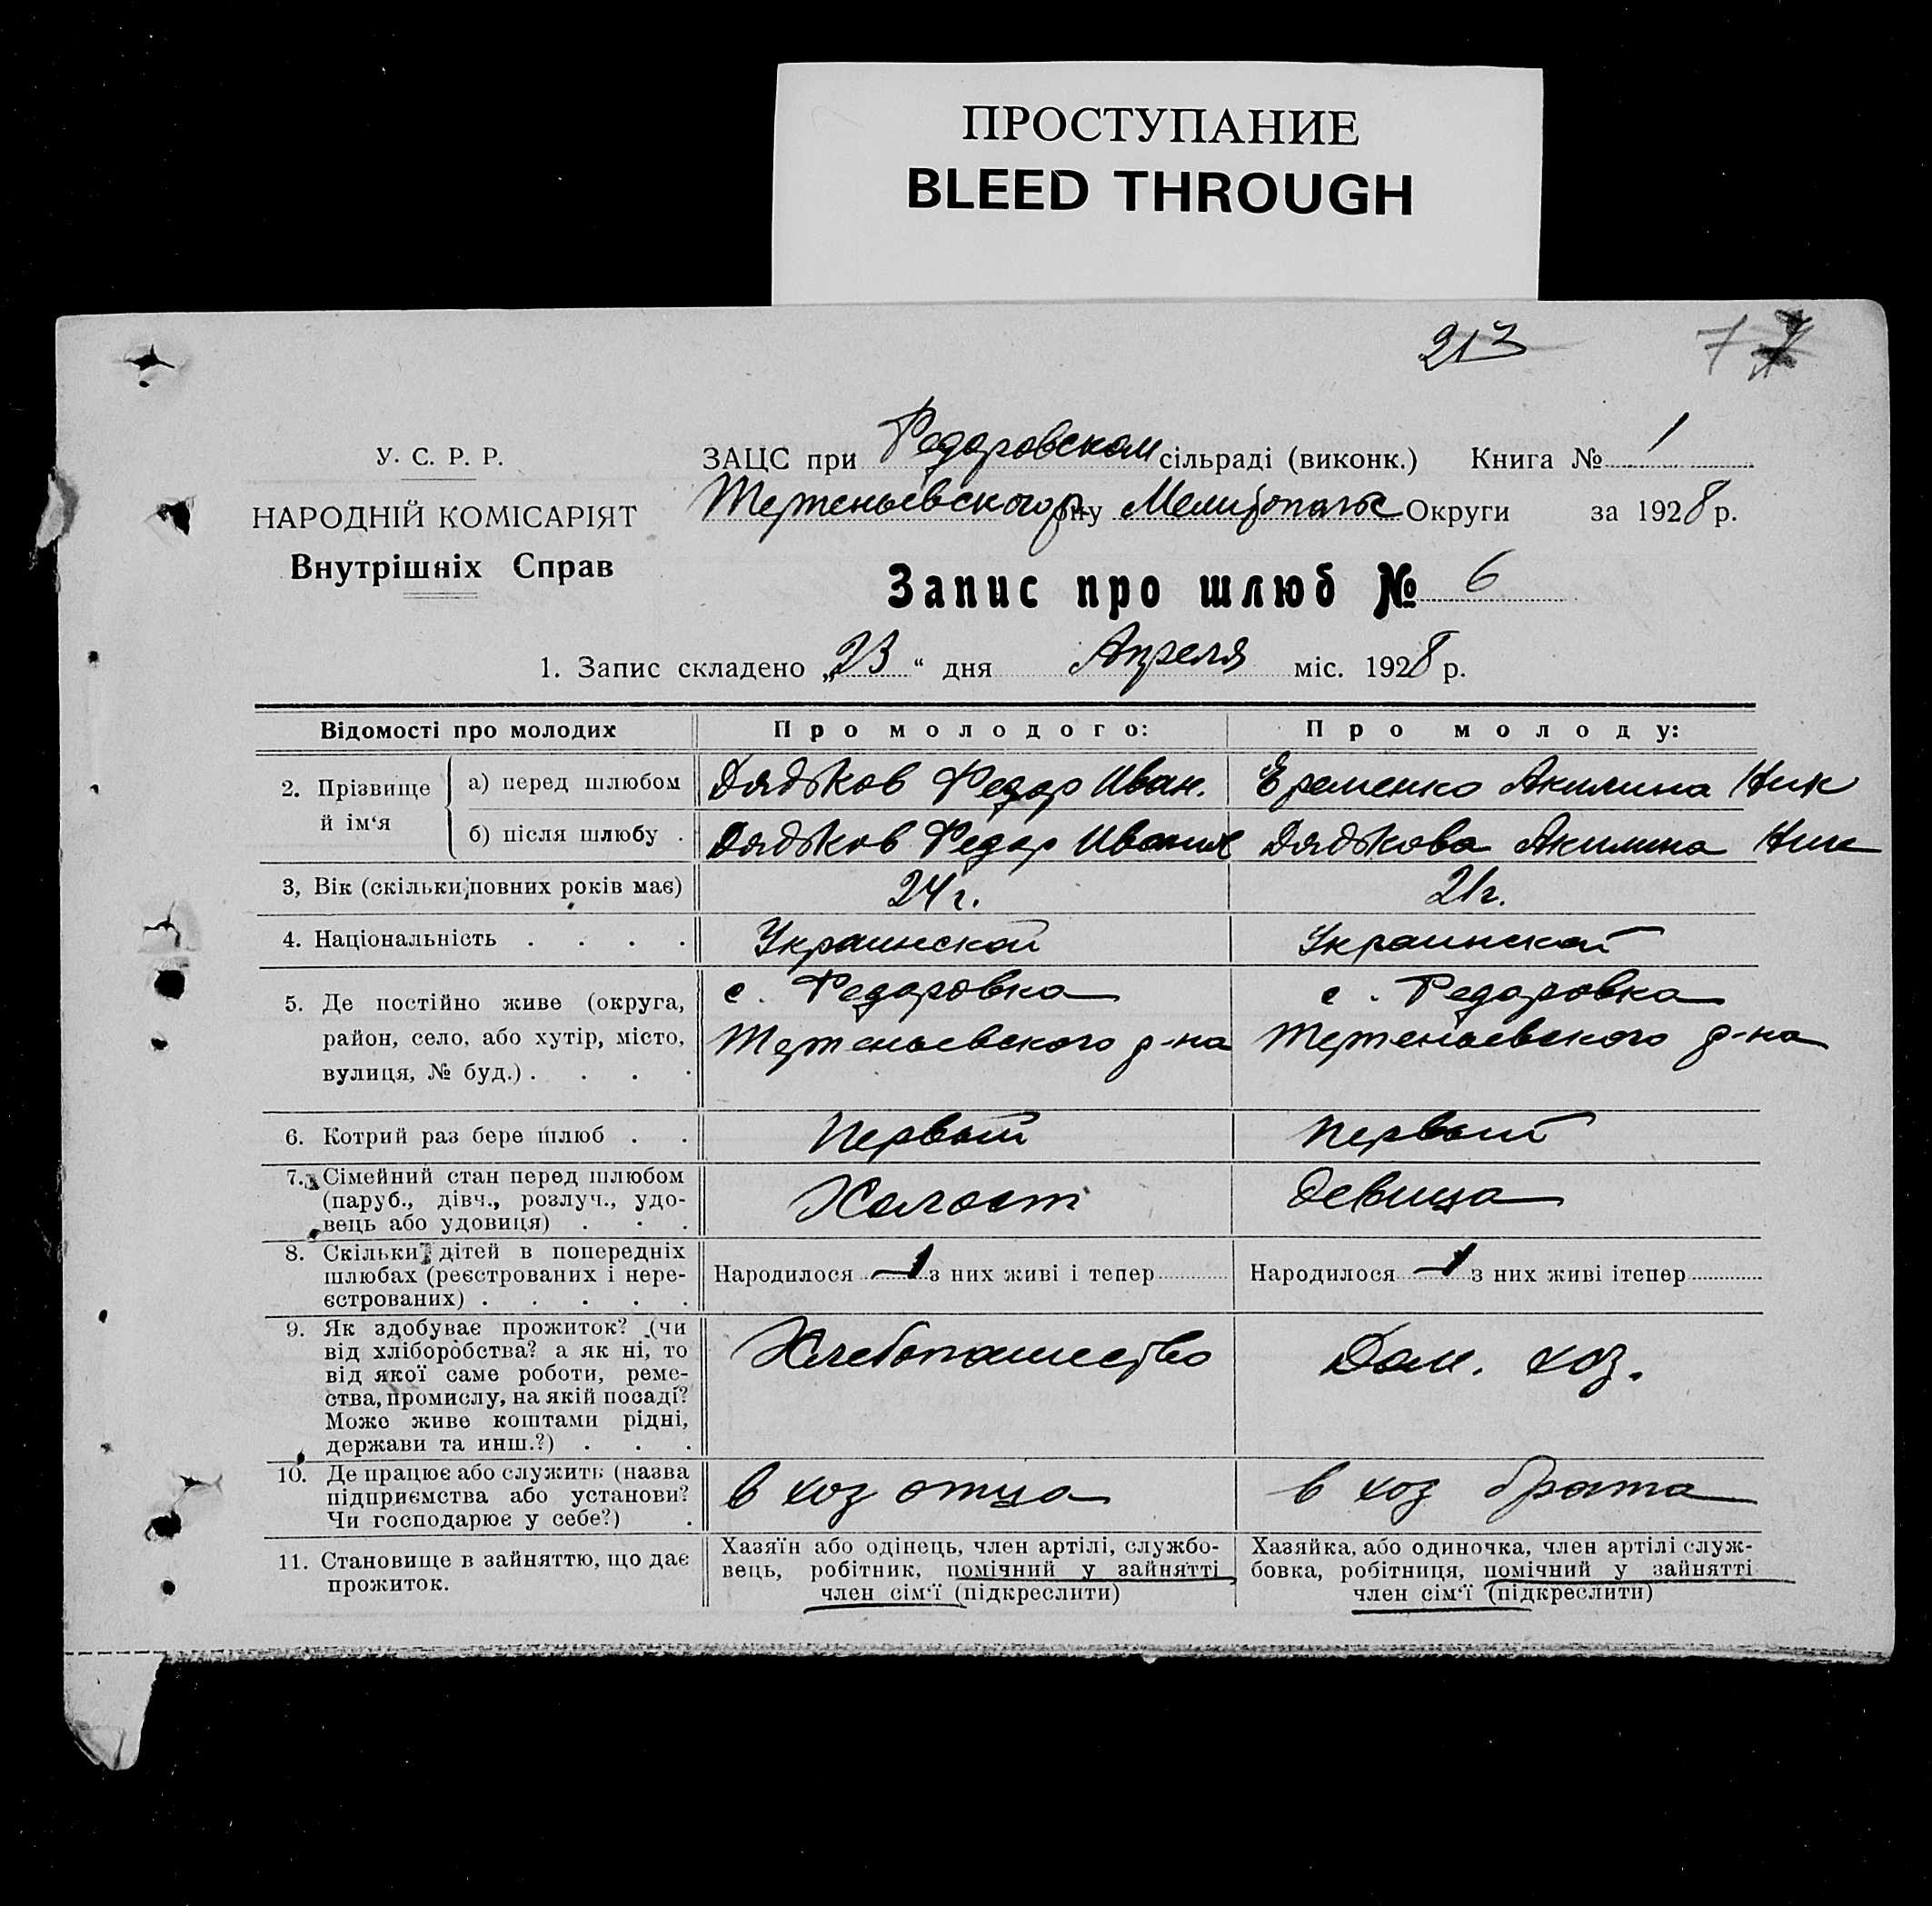 ПРОСТУПАНИЕ
BLEED THROUGH
213
У. С. Р. Р.
НАРОДНІЙ КОМІСАРІЯТ
Внутрішніх Справ
ЗАЦС при Федоровском сільраді (виконк.) Книга № 1
Терпеньевского р-ну Мелитопольс Округи за 1928 р.
Запис про шлюб № 6
1. Запис складено „23“ дня Апреля міс. 1928 р.
Відомості про молодих Про молодого: Про молоду:
2. Прізвище й ім‘я
а) перед шлюбом Дядьков Федор Иван. Еременко Акилина Ник
б) після шлюбу . Дядьков Федор Иванов Дядькова Акилина Ник
3, Вік (скільки повних років має) 24 г. 21 г.
4. Національність . . . . Украинской Украинской
5. Де постійно живе (округа, с. Федоровка с. Федоровка
район, село, або хутір, місто, Терпеньевского р-на Терпеньевского р-на
вулиця, № буд.) . . . .
6. Котрий раз бере шлюб . . Первый Первый
7. Сімейний стан перед шлюбом
(паруб., дівч., розлуч., удо- Холост девица
вець або удовиця) . . .
8. Скільки дітей в попередніх
шлюбах (реєстрованих і нере- Народилося — з них живі і тепер Народилося — з них живі ітепер
єстрованих) . . . . .
9. Як здобуває прожиток? (чи
від хліборобства? а як ні, то Хлебопашество Дом. хоз.
від якої саме роботи, реме-
ства, промислу, на якій посаді?
Може живе коштами рідні,
держави та инш.?) . . .
10. Де працює або служить (назва
підприємства або установи? в хоз отца в хоз брата
Чи господарює у себе?) .
11. Становище в зайняттю, що дає
прожиток.
Хазяїн або одінець, член артілі, службо-
вець, робітник, помічний у зайнятті
член сім‘ї (підкреслити)
Хазяйка, або одиночка, член артілі служ-
бовка, робітниця, помічний у зайнятті
член сім‘ї (підкреслити)